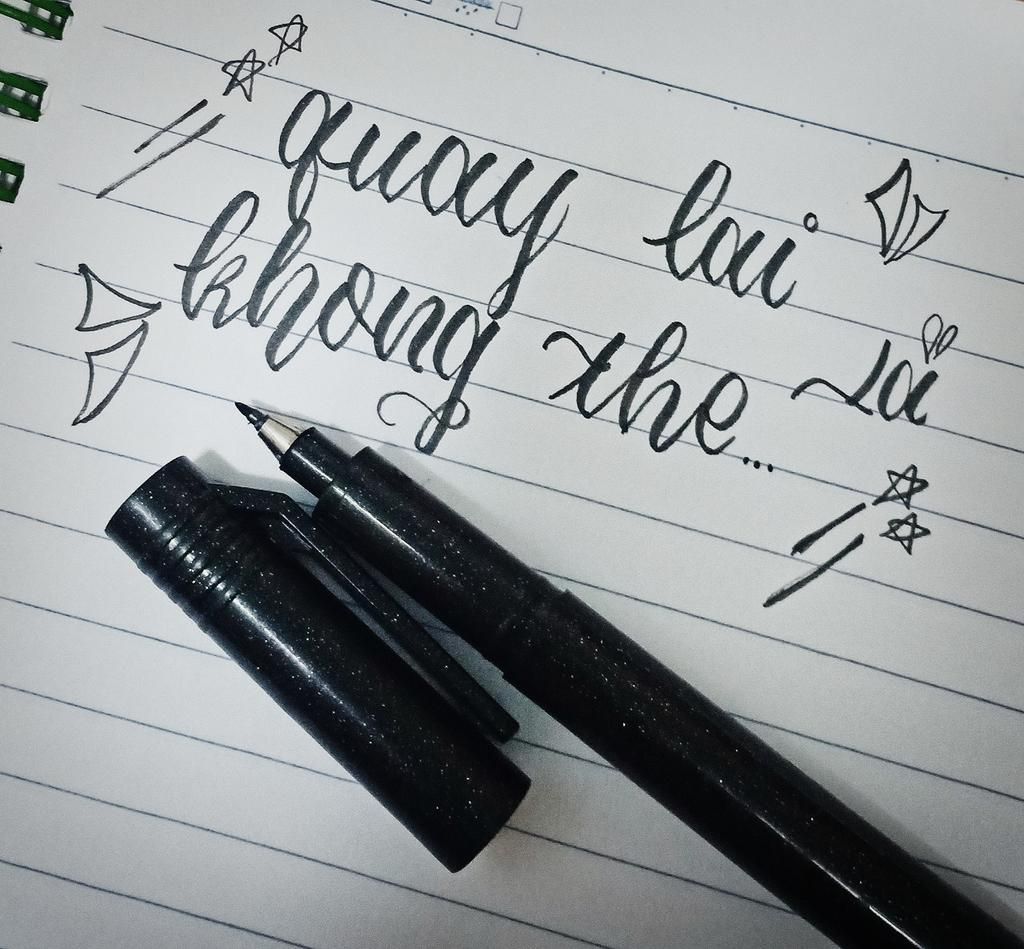 quay lai
khong the...